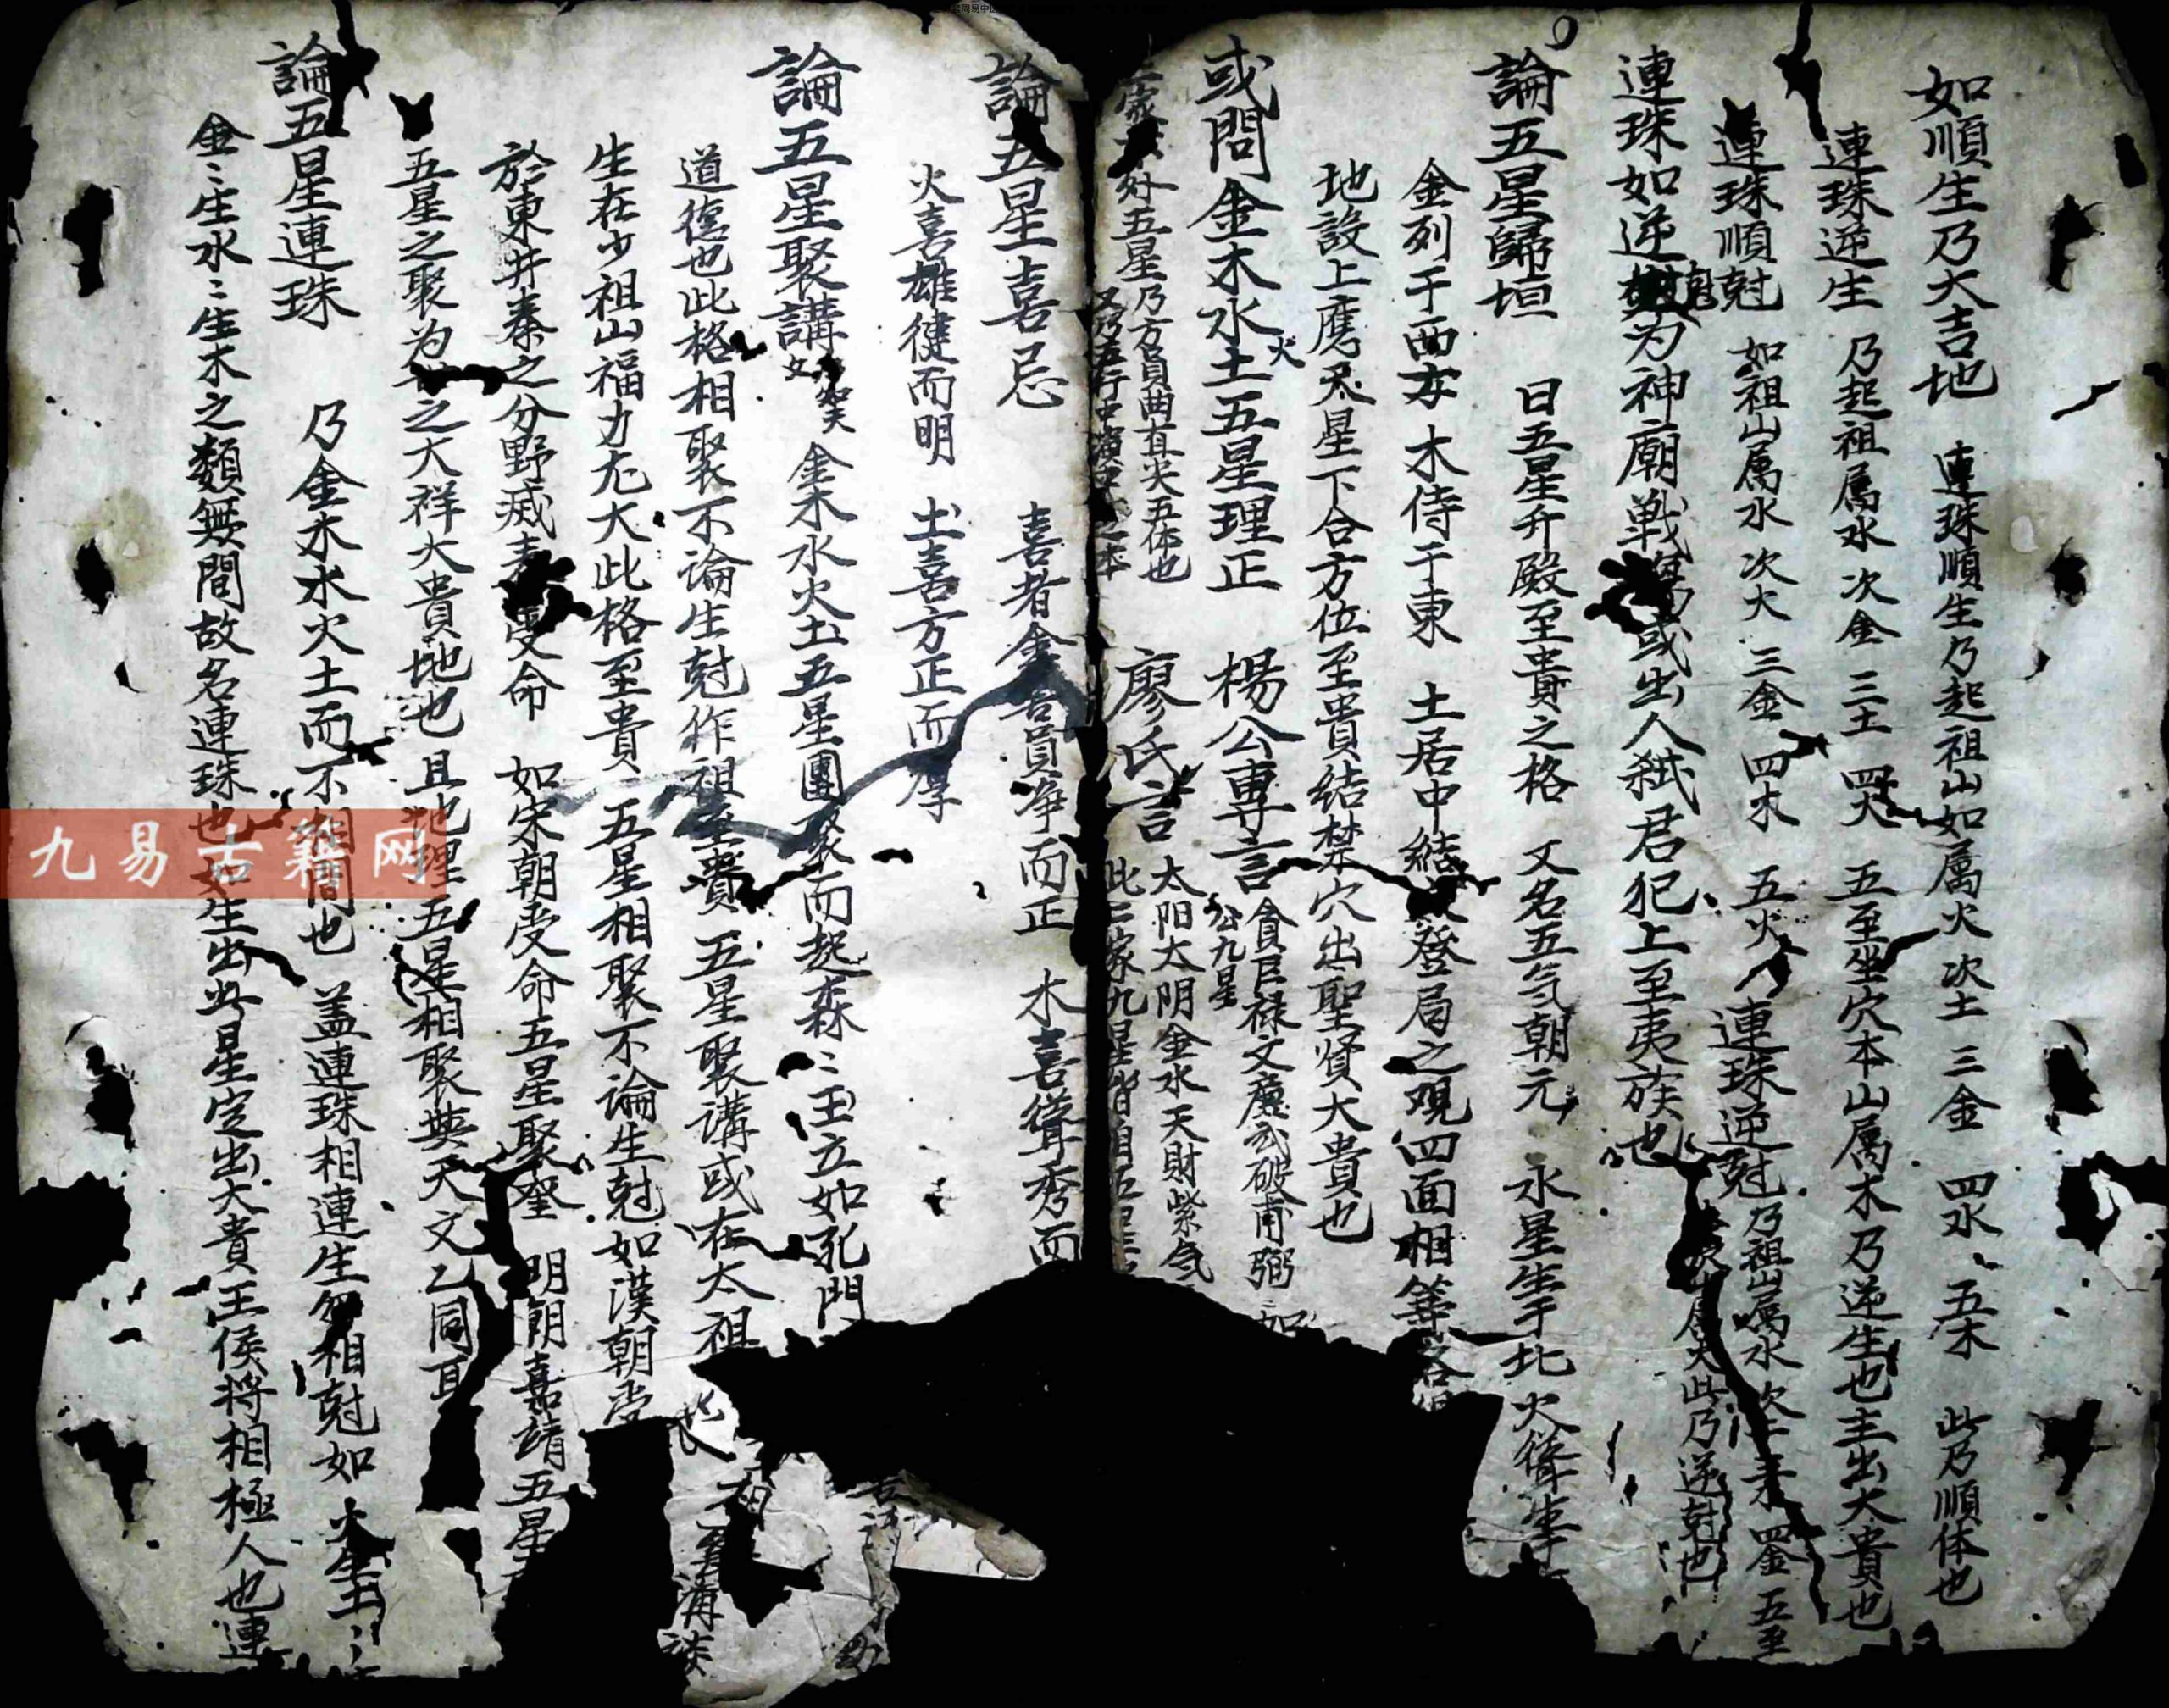 如順生乃大吉地 連珠順生乃起祖山如属火次土 三金 四水 五木 此乃順体也
連珠逆生 乃起祖属水 次金 三土 四火 五至坐穴本山属木乃逆生也主出大貴也
連珠順尅 如祖山属水 次火 三金 四木 五火 連珠逆尅 乃祖山属水 次土 四金 五至
此乃逆尅也
連珠如逆尅为神廟戦 或出人弑君犯上至夷族也
論五星歸垣 日五星升殿至貴之格 又名五气朝元 水星生于北 火聳生于
金列于西方 木侍于東 土居中 結 登局之观四面相等
地設上應天星下合方位至貴結禁穴出聖贤大貴也
或問金木水火土五星理正 楊公專言 貪巨禄文廉武破甫弼
公九星
廖氏言 太阳太阴金水天財紫气
此二家九星皆自五星
五星乃方員曲直尖五体也
又乃五行中
論五星喜忌 喜者金喜員净而正 木喜聳秀而
火喜雄健而明 土喜方正而厚
論五星聚講 金木水火土五星團聚而起森〻玉立如孔門
道德也此格相聚不論生尅作祖至貴 五星聚講或在太祖
生在少祖山福力尤大此格至貴、五星相聚不論生尅如漢朝受
於東井秦之分野滅 受命 如宋朝受命五星聚奎 明朝嘉靖五星
五星之聚为 之大祥大貴地也 且地理五星相聚與天文乙同耳
論五星連珠 乃金木水火土而不 間也 盖連珠相連生勿相尅如火生土〻
金〻生水〻生木之類無間故名連珠也如生出此星定出大貴王侯将相極人也連
九易古籍网